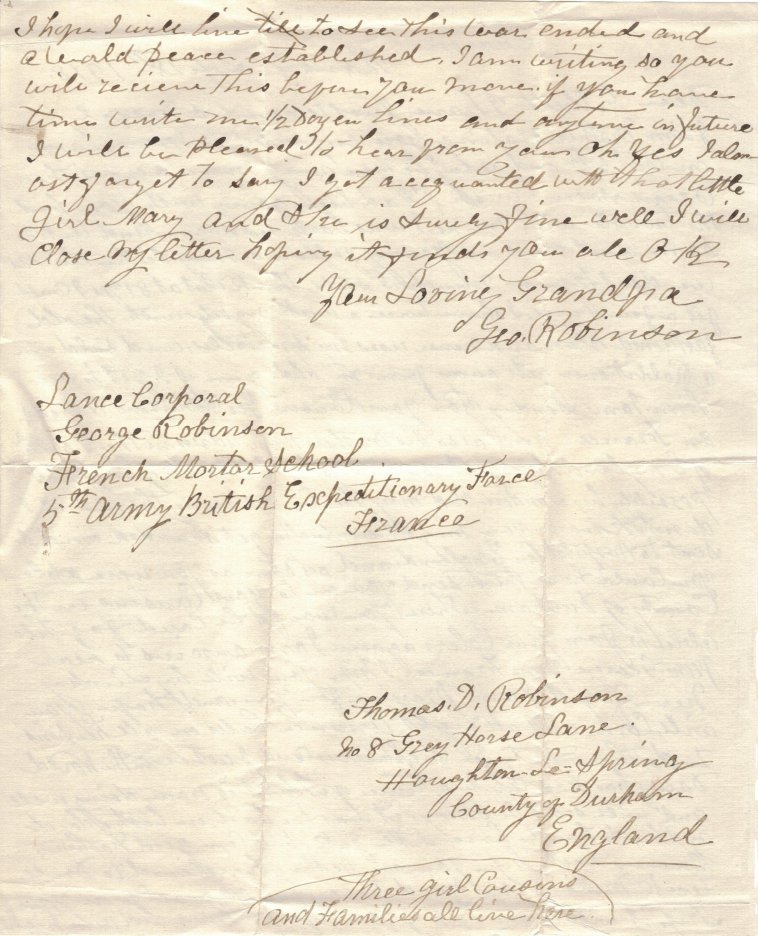 I hope I will live till to see this War ended and
a World peace established. I am writing so you
will recieve this before you move. if you have
time write me 1/2 Dozen lines and anytime in future
I will be Pleased to hear from you Oh Yes I alm
ost forget to say I got acequanted with that little
Girl Mary and She is surely fine well I will
Close my letter hoping it finds you all OK
Your Loving Grandpa
Geo. Robinson
Lance Corporal
George Robinson
French Mortar School
5th Army British Expeditionary Force
France
Thomas. D. Robinson
No 8 Grey Horse Lane.
Houghton-Le-Spring
County of Durham
England
Three girl Cousins
and Families all live here.